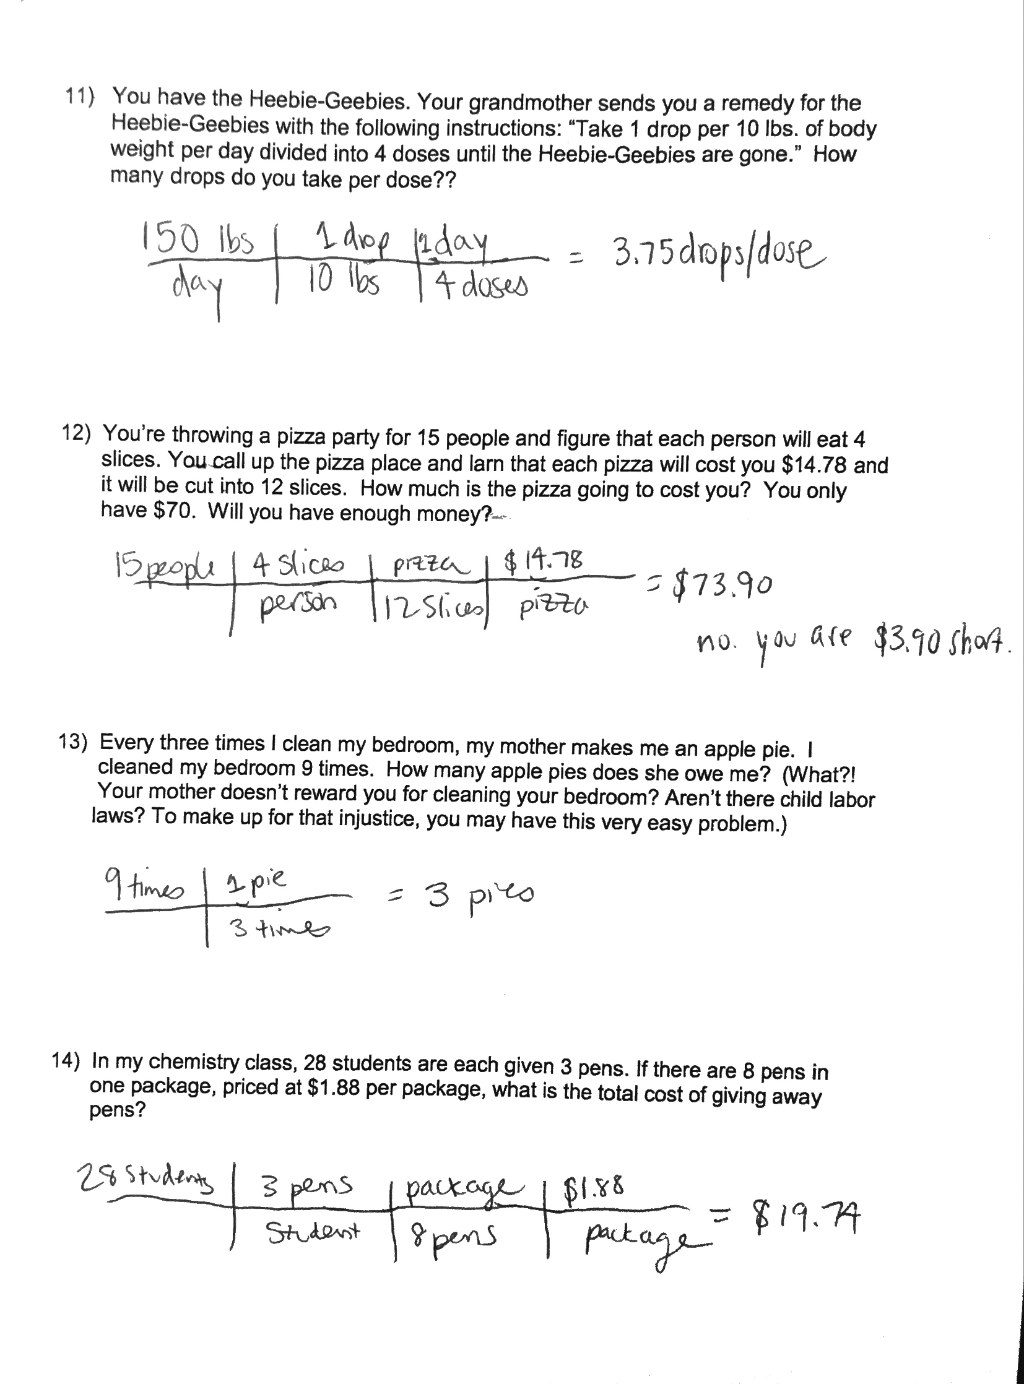 11) You have the Heebie-Geebies. Your grandmother sends you a remedy for the
Heebie-Geebies with the following instructions: "Take 1 drop per 10 lbs. of body
weight per day divided into 4 doses until the Heebie-Geebies are gone." How
many drops do you take per dose??
150 lbs | 1 drop | 1 day
day | 10 lbs | 4 doses
= 3.75 drops/dose
12) You're throwing a pizza party for 15 people and figure that each person will eat 4
slices. You call up the pizza place and larn that each pizza will cost you $14.78 and
it will be cut into 12 slices. How much is the pizza going to cost you? You only
have $70. Will you have enough money?
15 people | 4 slices | pizza | $14.78
person | 12 slices | pizza
= $73.90
no. you are $3.90 short.
13) Every three times I clean my bedroom, my mother makes me an apple pie. I
cleaned my bedroom 9 times. How many apple pies does she owe me? (What?!
Your mother doesn't reward you for cleaning your bedroom? Aren't there child labor
laws? To make up for that injustice, you may have this very easy problem.)
9 times | 1 pie
3 times
= 3 pies
14) In my chemistry class, 28 students are each given 3 pens. If there are 8 pens in
one package, priced at $1.88 per package, what is the total cost of giving away
pens?
28 students | 3 pens | package | $1.88
Student | 8 pens | package
= $19.74